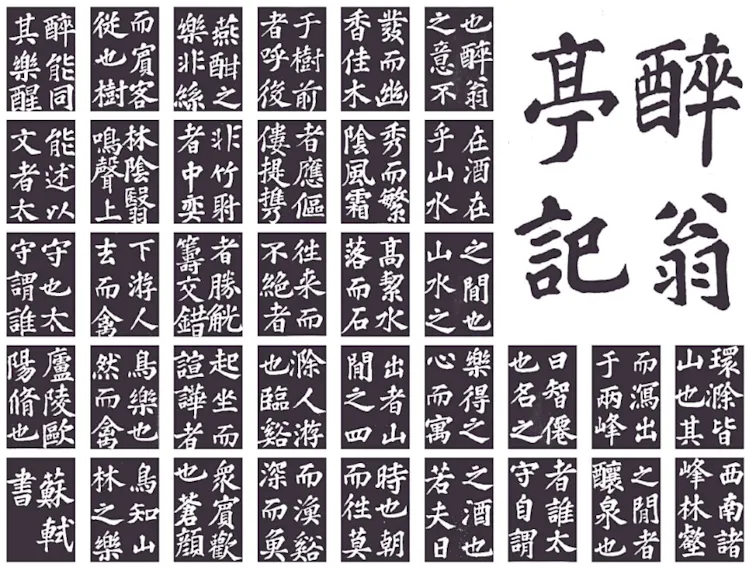 醉翁
亭記
環滁皆
山也其
西南諸
峰林壑
而瀉出
于兩峰
之間者
釀泉也
曰智僊
也名之
者誰太
守自謂
也醉翁
之意不
在酒在
乎山水
之間也
山水之
樂得之
心而寓
之酒也
若夫日
發而幽
香佳木
秀而繁
陰風霜
高絜水
落而石
出者山
間之四
時也朝
而往莫
于樹前
者呼後
者應傴
僂提攜
往来而
不絶者
滁人游
也臨谿
而漁谿
深而魚
燕酣之
樂非絲
非竹射
者中奕
者勝觥
籌交錯
起坐而
諠譁者
衆賓歡
也蒼顔
而賓客
従也樹
林陰翳
鳴聲上
下游人
去而禽
鳥樂也
然而禽
鳥知山
林之樂
醉能同
其樂醒
能述以
文者太
守也太
守謂誰
廬陵歐
陽脩也
蘇軾
書